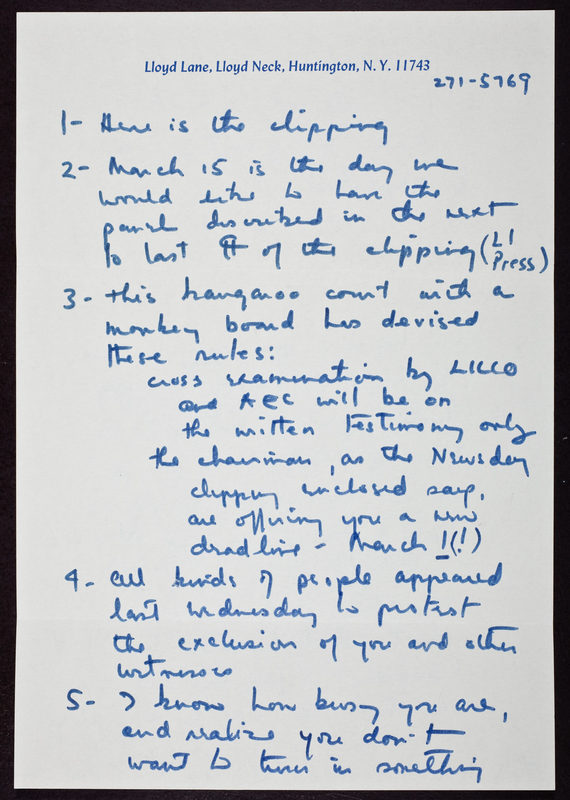 Lloyd Lane, Lloyd Neck, Huntington, N. Y. 11743
271-5769
1- Here is the clipping
2- March 15 is the day we
would like to have the
panel described in the next
to last ¶ of the clipping (LI
Press)
3- this kangaroo court with a
monkey board has devised
these rules:
cross examination by LILCO
and AEC will be on
the written testimony only
the chairman, as the Newsday
clipping enclosed says,
are offering you a new
deadline - March 1(!)
4- all kinds of people appeared
last wednesday to protest
the exclusion of you and other
witnesses
5- I know how busy you are,
and realize you don't
want to turn in something